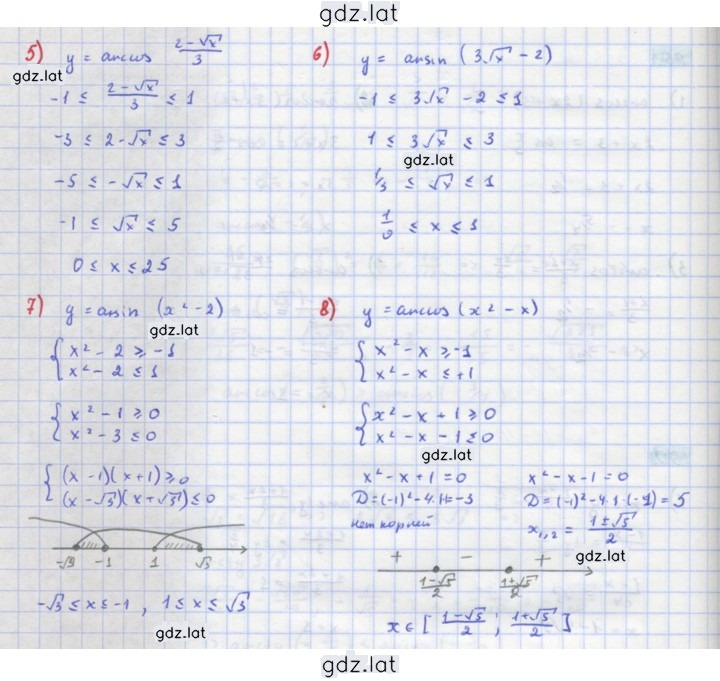 gdz.lat
5) y = arccos (2-√x)/3
gdz.lat
-1 ≤ (2-√x)/3 ≤ 1
-3 ≤ 2-√x ≤ 3
-5 ≤ -√x ≤ 1
-1 ≤ √x ≤ 5
0 ≤ x ≤ 25
6) y = arcsin (3√x - 2)
-1 ≤ 3√x - 2 ≤ 1
1 ≤ 3√x ≤ 3
gdz.lat
1/3 ≤ √x ≤ 1
1/9 ≤ x ≤ 1
7) y = arcsin (x² - 2)
gdz.lat
{ x² - 2 ≥ -1
x² - 2 ≤ 1
{ x² - 1 ≥ 0
x² - 3 ≤ 0
{ (x - 1)(x + 1) ≥ 0
(x - √3)(x + √3) ≤ 0
gdz.lat
-√3 -1 1 √3
-√3 ≤ x ≤ -1 , 1 ≤ x ≤ √3
gdz.lat
8) y = arccos (x² - x)
{ x² - x ≥ -1
x² - x ≤ +1
{ x² - x + 1 ≥ 0
x² - x - 1 ≤ 0
gdz.lat
x² - x + 1 = 0
D = (-1)² - 4·1 = -3
нет корней
x² - x - 1 = 0
D = (-1)² - 4·1·(-1) = 5
x₁,₂ = (1±√5)/2
gdz.lat
+ - +
(1-√5)/2 (1+√5)/2
x ∈ [ (1-√5)/2 ; (1+√5)/2 ]
gdz.lat